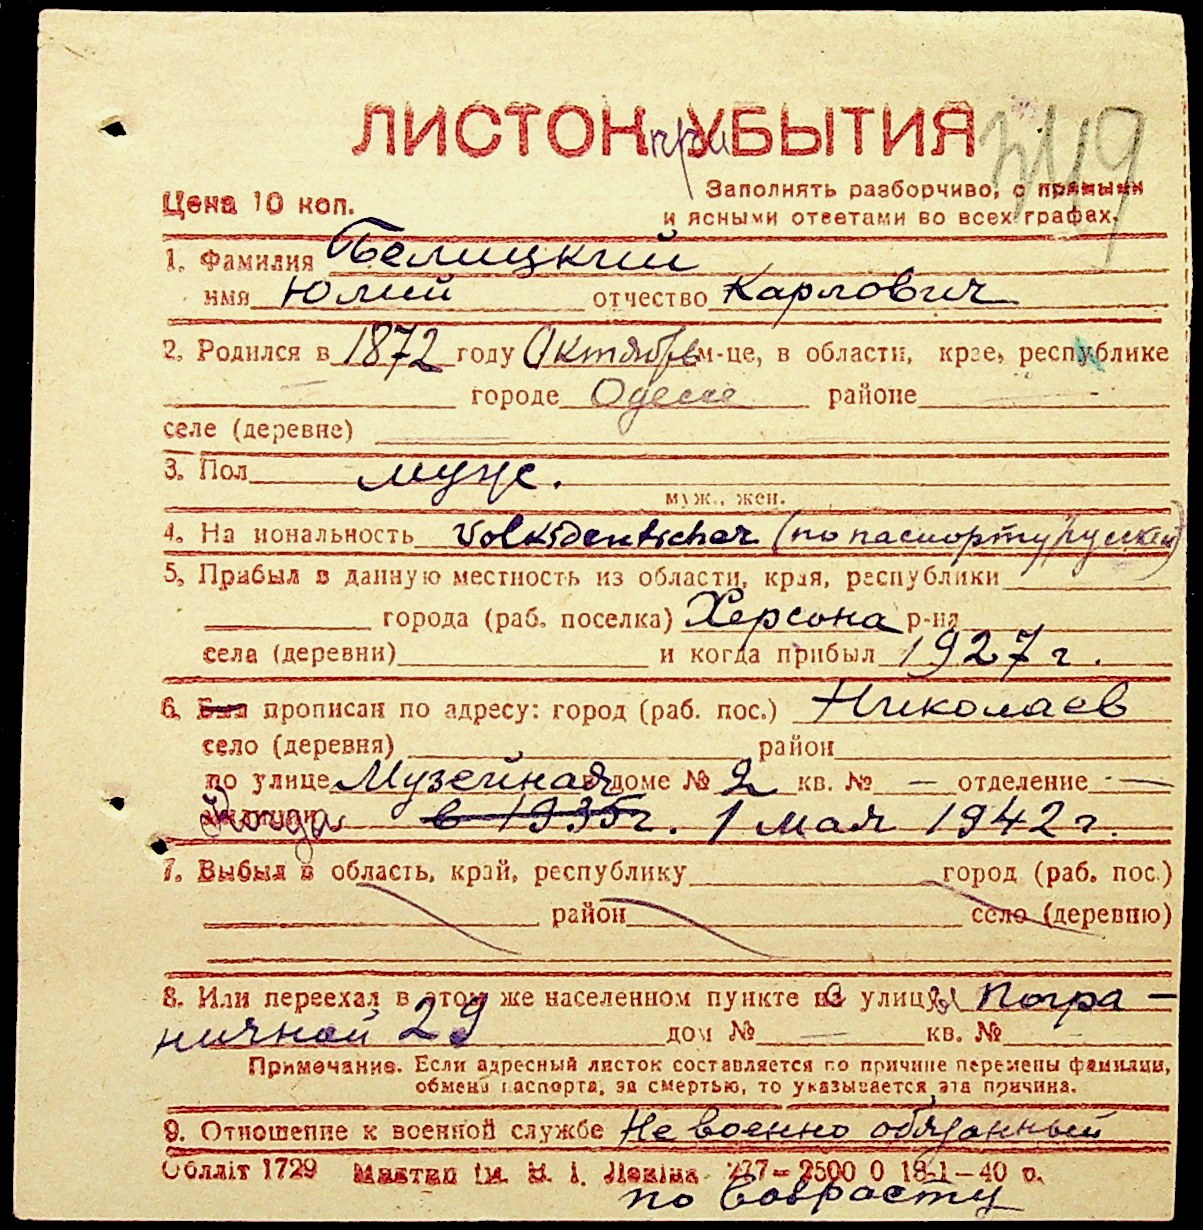 ЛИСТОК при УБЫТИЯ
349
Цена 10 коп.
Заполнять разборчиво, с прямыми
и ясными ответами во всех графах.
1. Фамилия Белицкий
имя Юлий отчество Карлович
2. Родился в 1872 году Октябре м-це, в области, крае, республике
— городе Одессе районе
селе (деревне)
3. Пол муж.
муж., жен.
4. На иональность Volksdeutscher (по паспорту русский)
5. Прибыл в данную местность из области, края, республики
города (раб. поселка) Херсона р-на
села (деревни) и когда прибыл 1927 г.
6. Был прописан по адресу: город (раб. пос.) Николаев
село (деревня) район
по улице Музейная в доме № 2 кв. № — отделение —
Когда в 1935 г. 1 мая 1942 г.
7. Выбыл в область, край, республику город (раб. пос.)
район село (деревню)
8. Или переехал в этом же населенном пункте с улицы Погра-
ничной 29 дом № — кв. №
Примечание. Если адресный листок составляется по причине перемены фамилии,
обмена паспорта, за смертью, то указывается эта причина.
9. Отношение к военной службе Не военно обязанный
Обллiт 1729 Миктеп iм. В. I. Ленiна 277—2500 0 18-1—40 р.
по возрасту